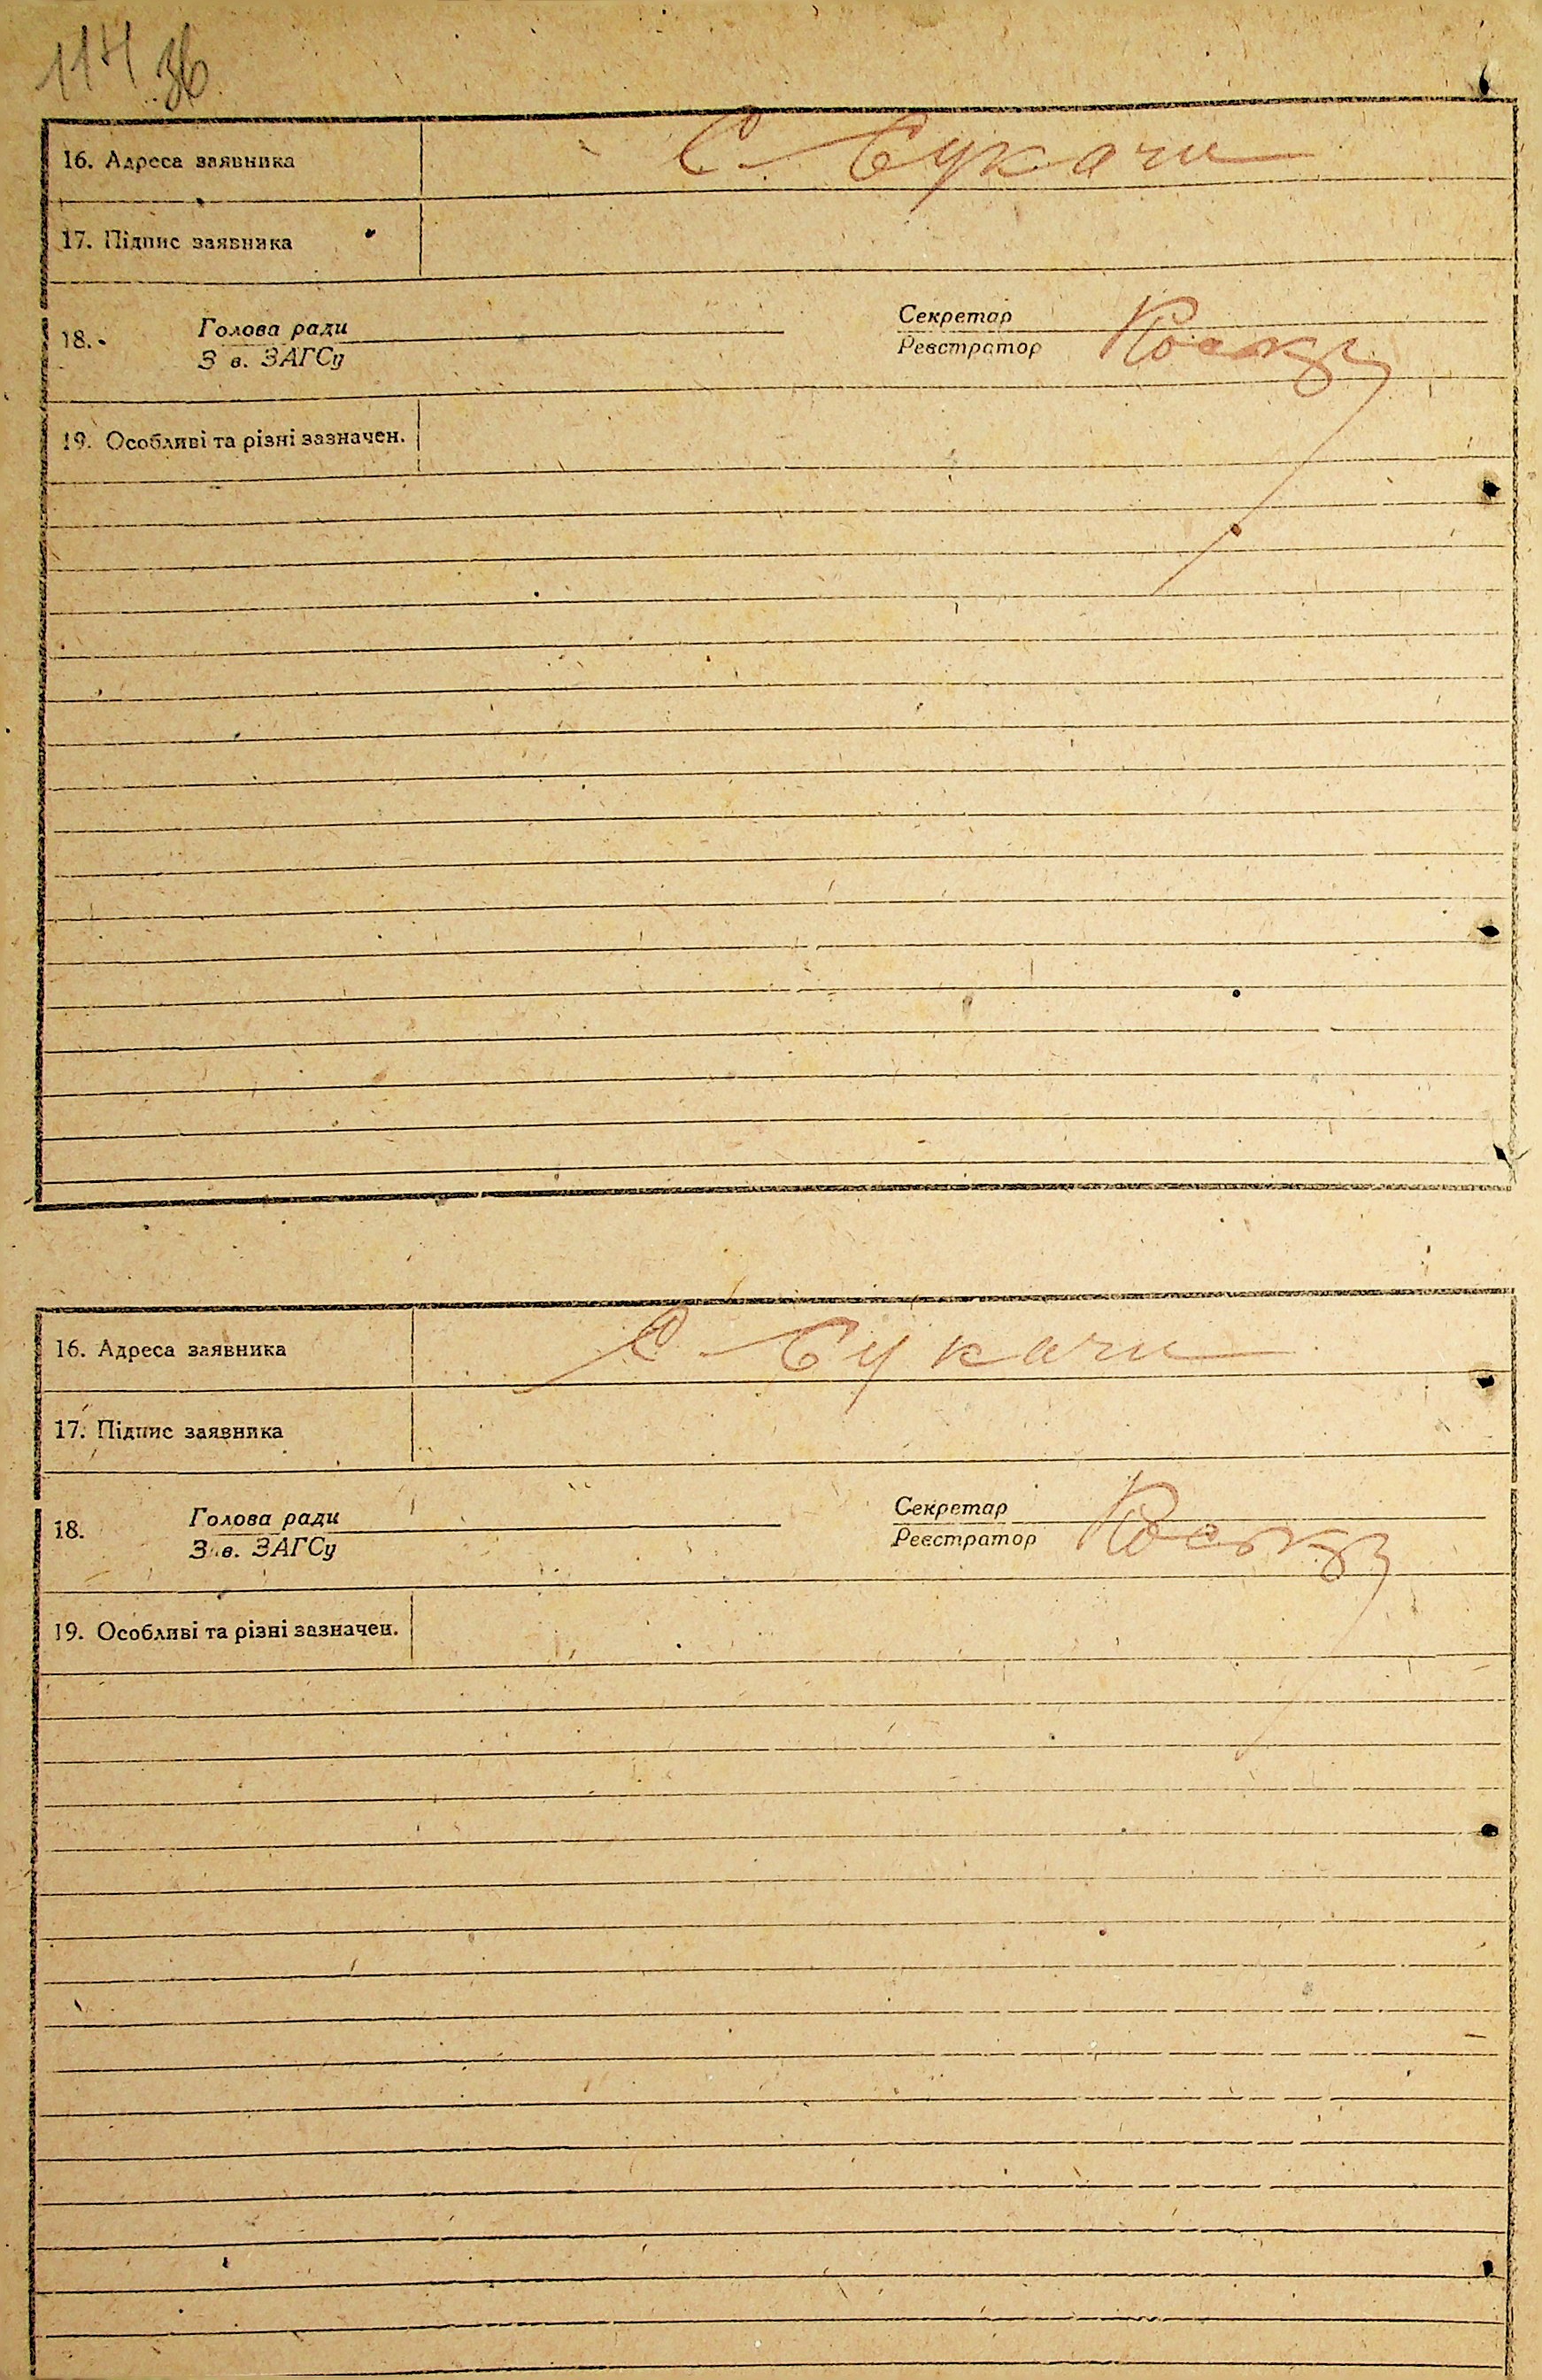 114 36
16. Адреса заявника С. Букачи
17. Підпис заявника
18. Голова ради Секретар
З в. ЗАГСу Реєстратор
19. Особливі та різні зазначен.
16. Адреса заявника С. Букачи
17. Підпис заявника
18. Голова ради Секретар
З в. ЗАГСу Реєстратор
19. Особливі та різні зазначен.